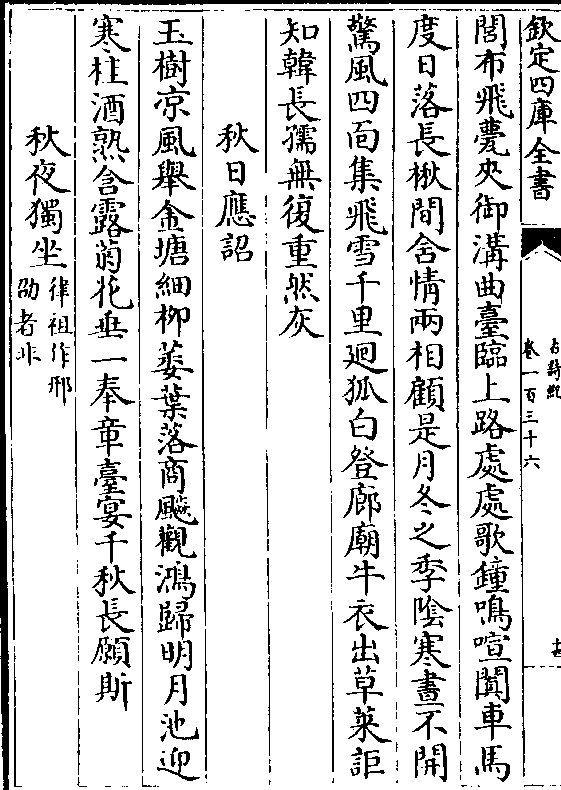 欽定四庫全書
古詩紀
卷一百三十六
閣布飛甍夾御溝曲臺臨上路處處歌鐘鳴喧闐車馬
度日落長楸間含情兩相顧是月冬之季陰寒晝不開
驚風四面集飛雪千里廻狐白登廊廟牛衣出草萊詎
知韓長孺無復重然灰
秋日應詔
玉樹凉風舉金塘細柳萎葉落商飈觀鴻歸明月池迎
寒桂酒熟含露菊花垂一奉章臺宴千秋長願斯
秋夜獨坐
律祖作邢
劭者非